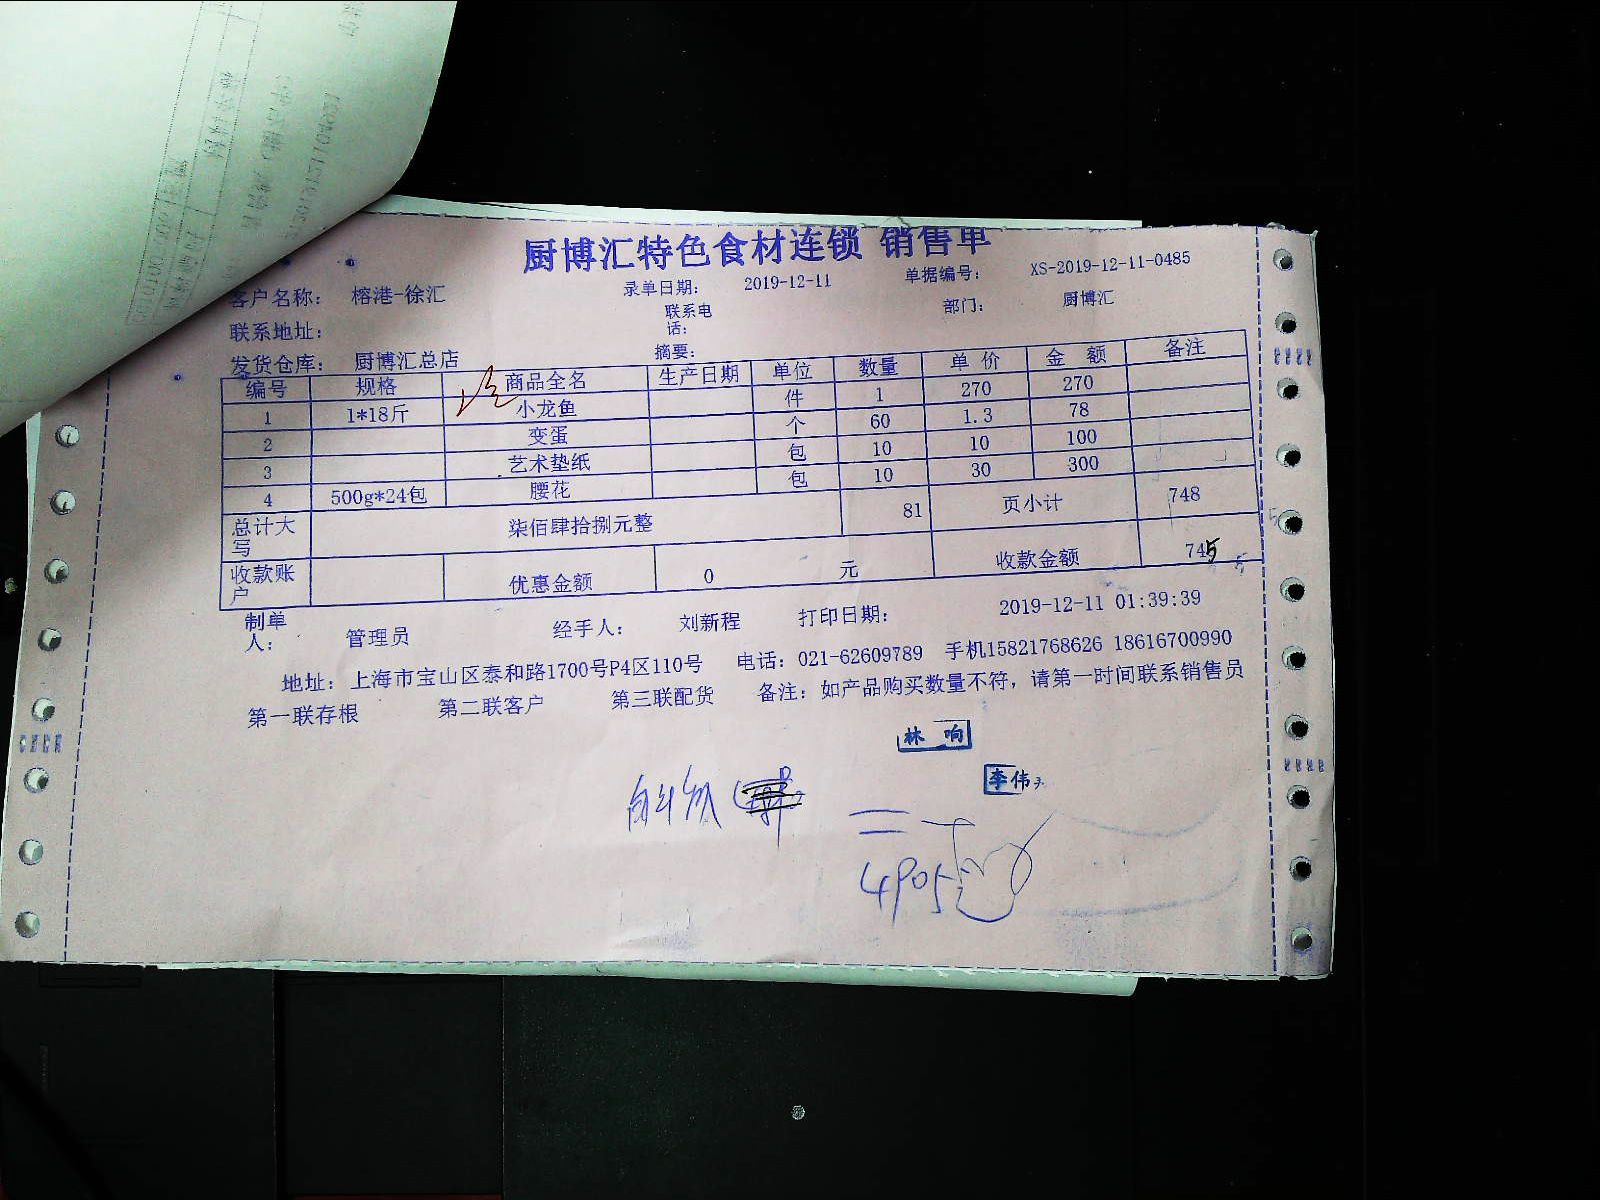 厨博汇特色食材连锁 销售单
客户名称： 榕港-徐汇 录单日期： 2019-12-11 单据编号： XS-2019-12-11-0485
联系地址： 联系电话： 部门： 厨博汇
发货仓库： 厨博汇总店 摘要：
编号 规格 商品全名 生产日期 单位 数量 单价 金额 备注
1 1*18斤 小龙鱼 件 1 270 270
2 变蛋 个 60 1.3 78
3 艺术垫纸 包 10 10 100
4 500g*24包 腰花 包 10 30 300
总计大写 柒佰肆拾捌元整 81 页小计 748
收款账户 优惠金额 0 元 收款金额 745
制单人： 管理员 经手人： 刘新程 打印日期： 2019-12-11 01:39:39
地址：上海市宝山区泰和路1700号P4区110号 电话：021-62609789 手机15821768626 18616700990
第一联存根 第二联客户 第三联配货 备注：如产品购买数量不符，请第一时间联系销售员
林 响
李伟
4905